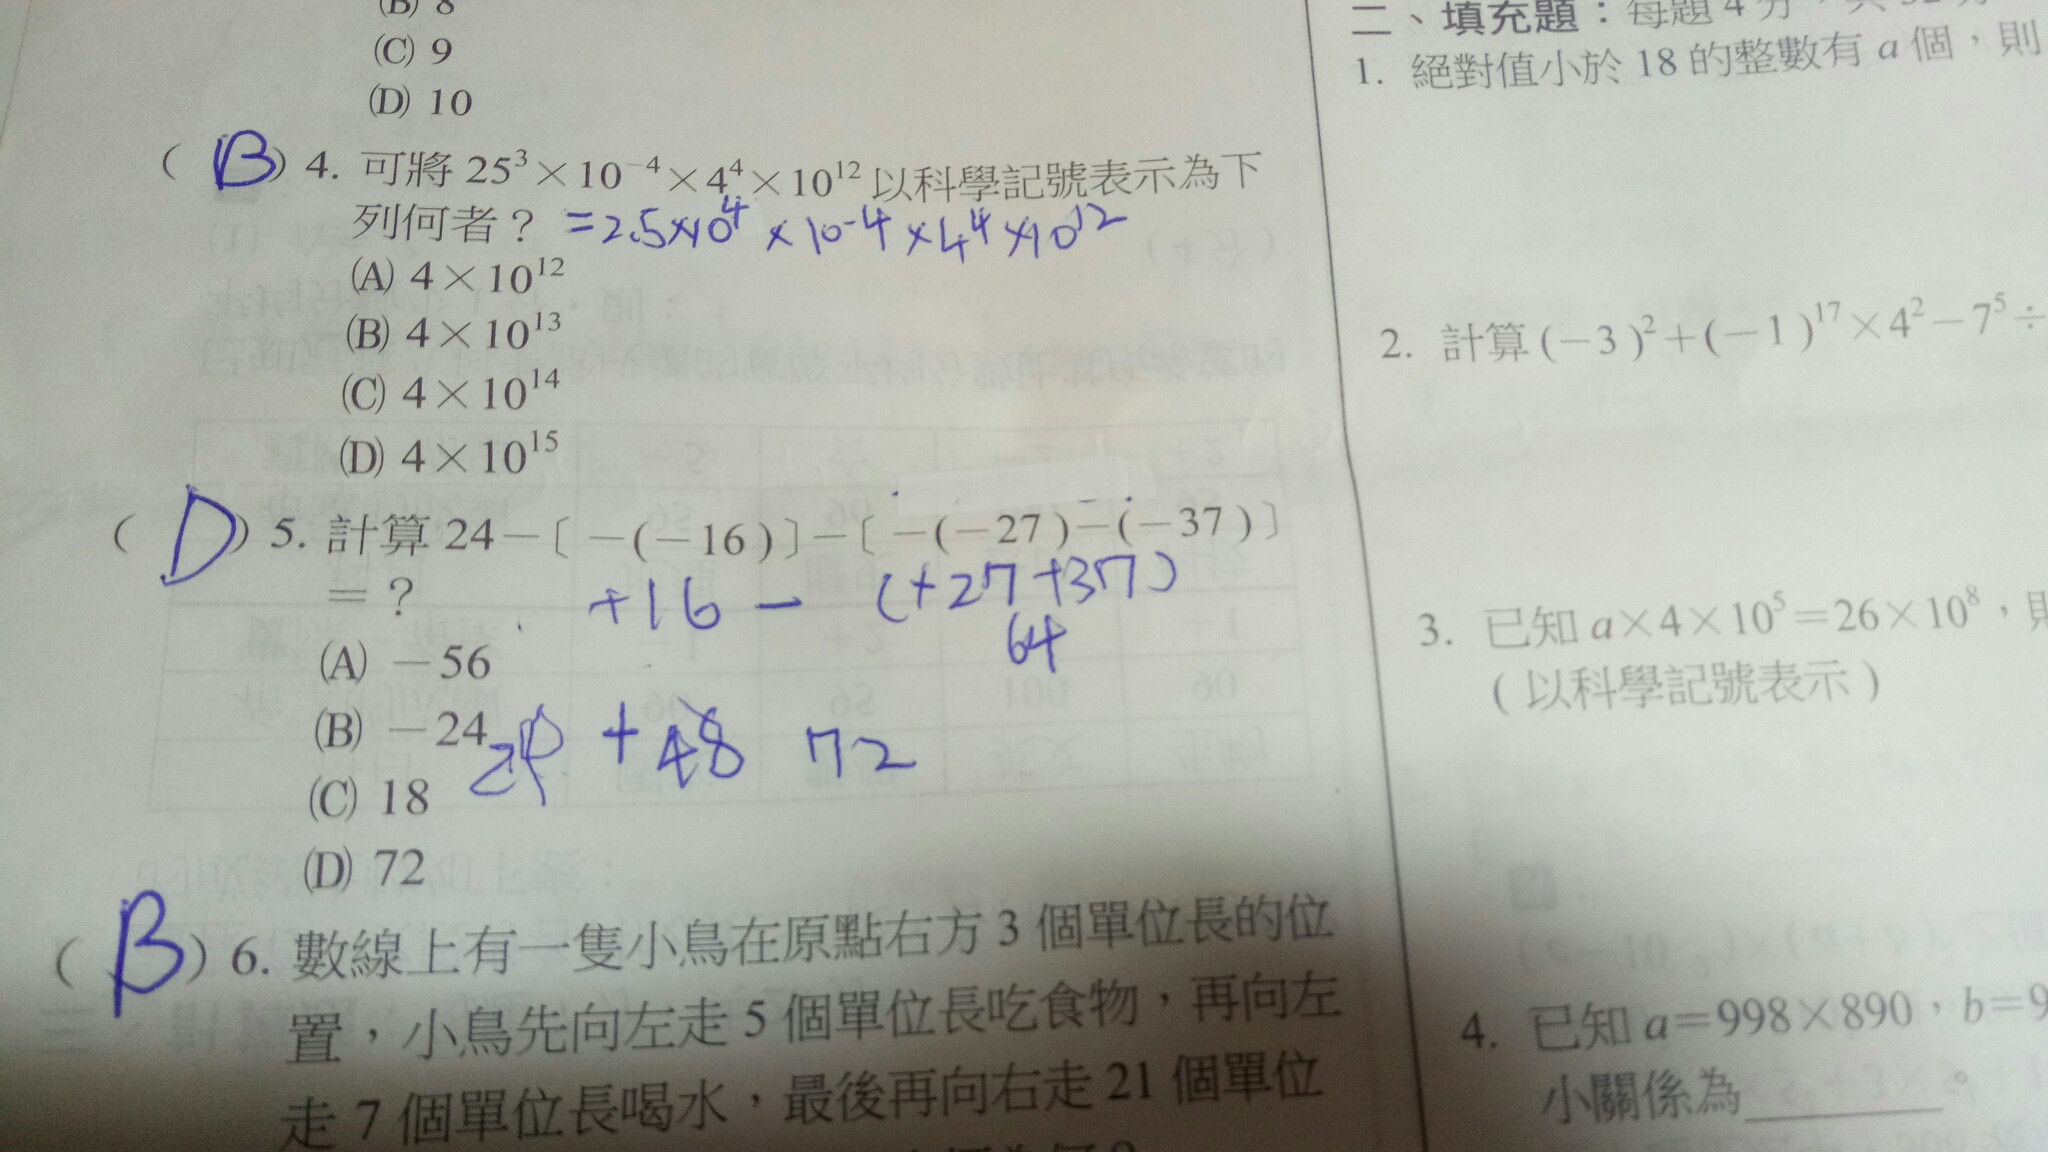 (B) 8
(C) 9
(D) 10
( B ) 4. 可將 25³×10⁻⁴×4⁴×10¹² 以科學記號表示為下
列何者？ =2.5×10⁴ × 10⁻⁴ × 4⁴ ×10¹²
(A) 4×10¹²
(B) 4×10¹³
(C) 4×10¹⁴
(D) 4×10¹⁵
( D ) 5. 計算 24－〔－(－16)〕－〔－(－27)－(－37)〕
＝？ +16 - (+27+37)
64
(A) －56
(B) －24
+ 48 72
(C) 18
(D) 72
( B ) 6. 數線上有一隻小鳥在原點右方 3 個單位長的位
置，小鳥先向左走 5 個單位長吃食物，再向左
走 7 個單位長喝水，最後再向右走 21 個單位
二、填充題：每題 4 分，共 32 分
1. 絕對值小於 18 的整數有 a 個，則
2. 計算 (－3)²＋(－1)¹⁷×4²－7⁵÷
3. 已知 a×4×10⁵＝26×10⁸，則
(以科學記號表示)
4. 已知 a＝998×890，b＝9
小關係為＿＿＿＿。